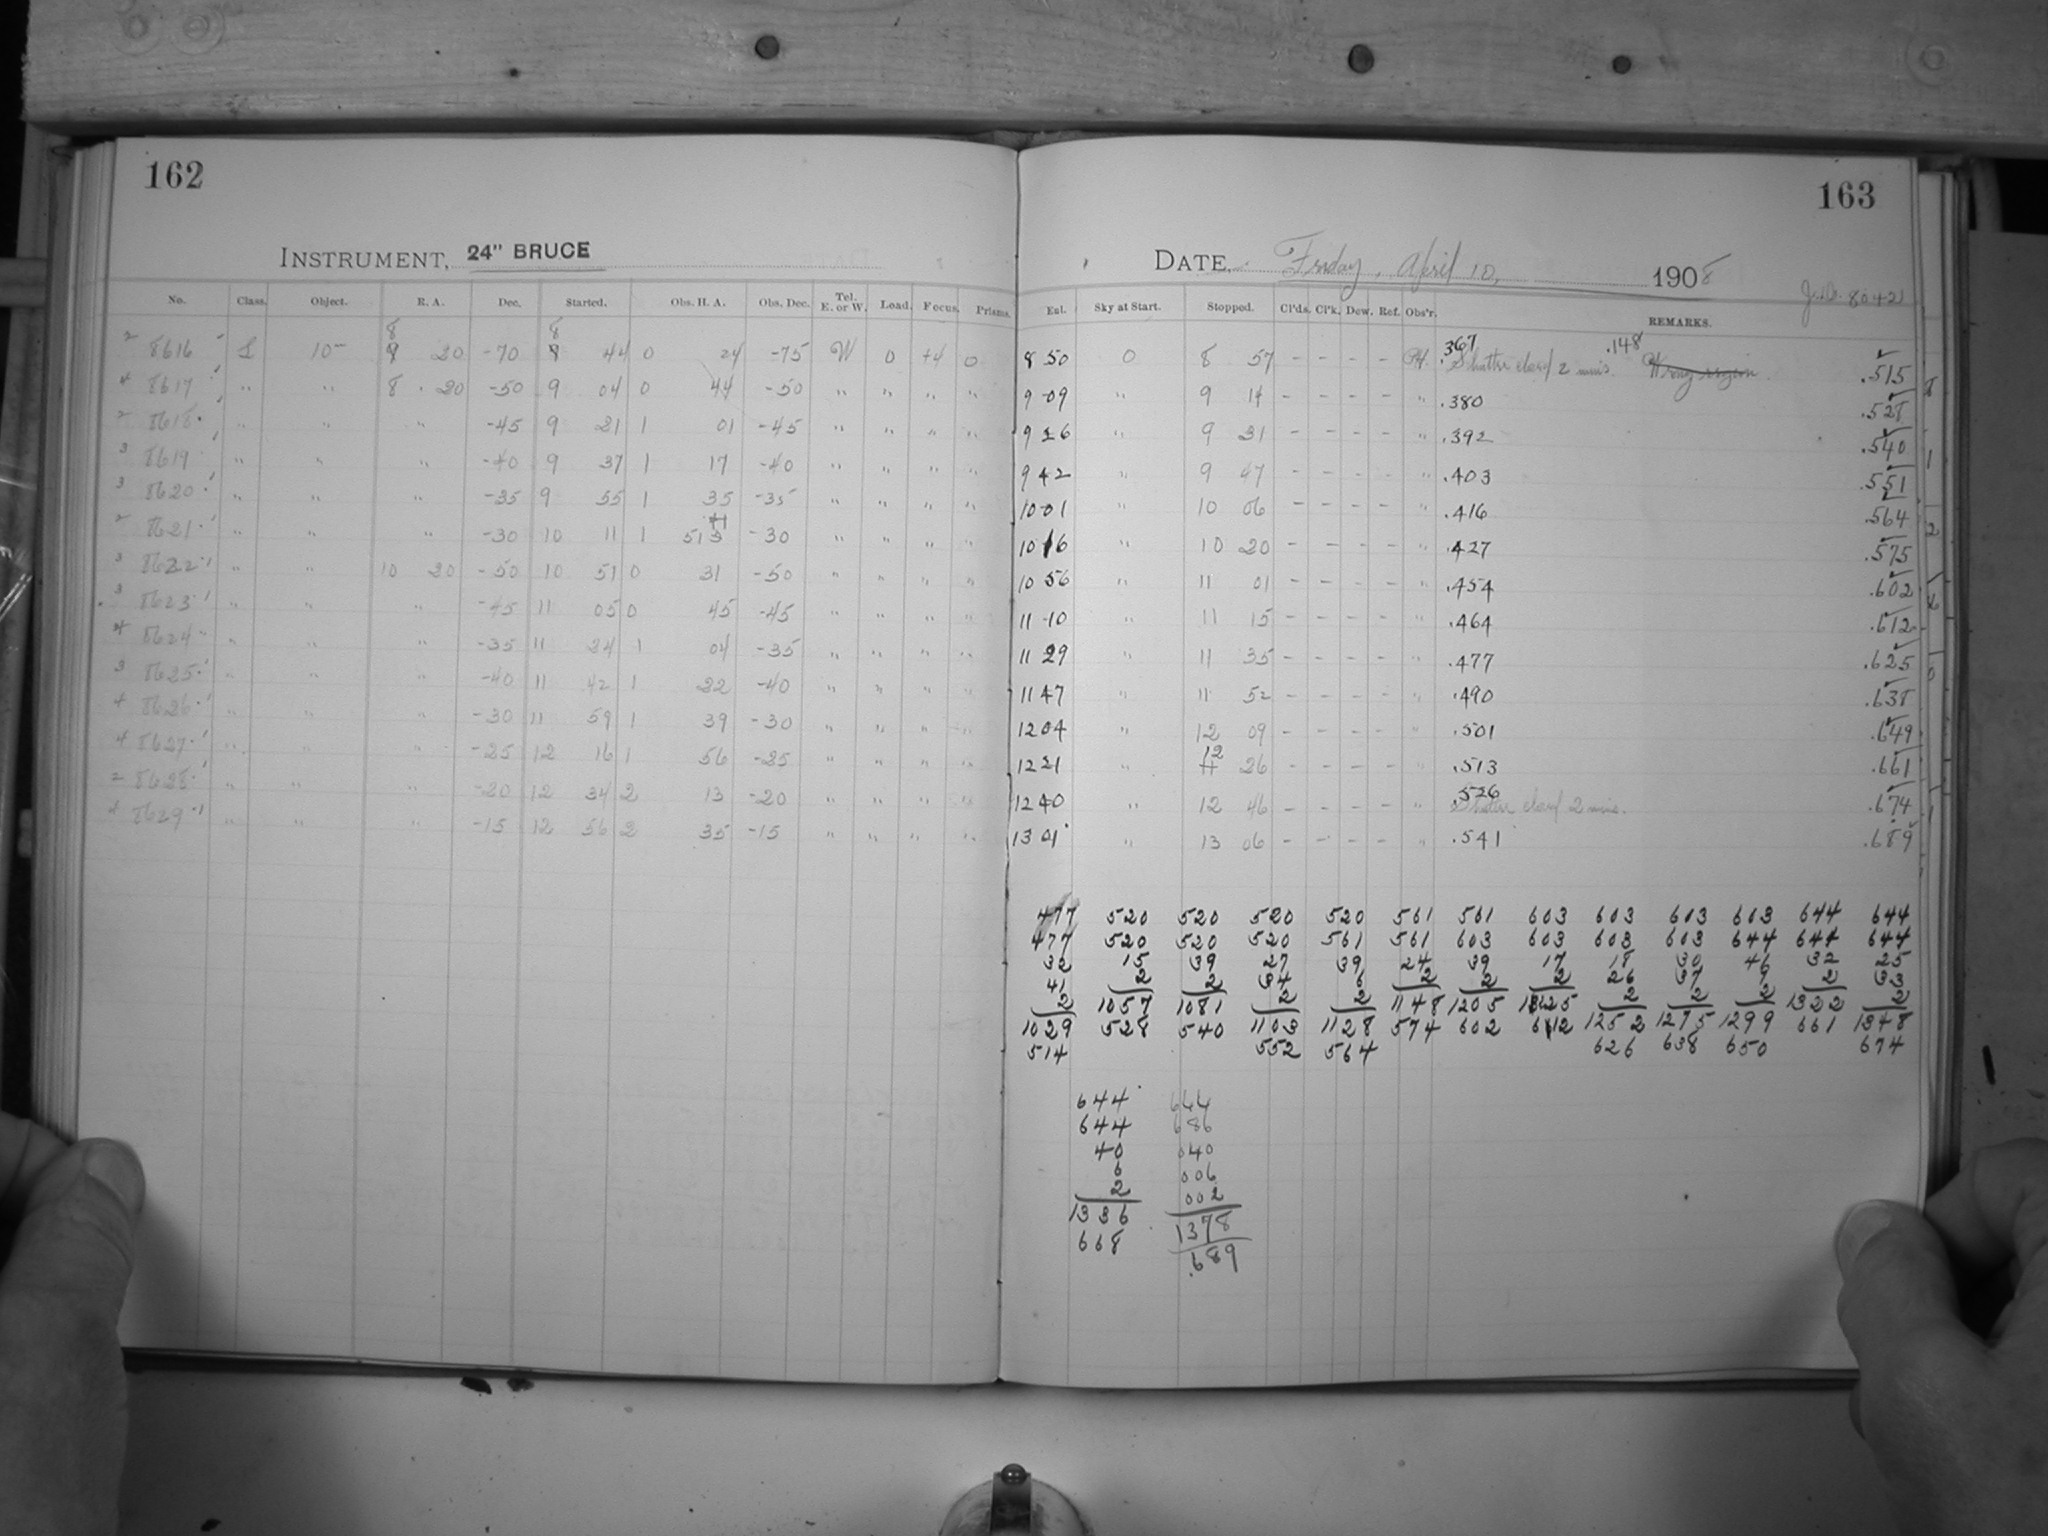 162
INSTRUMENT, 24" BRUCE
No. Class. Object. R. A. Dec. Started. Obs. H. A. Obs. Dec. Tel. E. or W. Load. Focus. Prisms.
2 8616 L 10m 8 20 -70 8 44 0 24 -75 W 0 +4 0
4 8617 " " 8 20 -50 9 04 0 44 -50 " " " "
2 8618 " " " -45 9 21 1 01 -45 " " " "
3 8619 " " " -40 9 37 1 17 -40 " " " "
3 8620 " " " -35 9 55 1 35 -35 " " " "
2 8621 " " " -30 10 11 1 51 -30 " " " "
3 8622 " " 10 20 -50 10 51 0 31 -50 " " " "
3 8623 " " " -45 11 05 0 45 -45 " " " "
4 8624 " " " -35 11 24 1 04 -35 " " " "
3 8625 " " " -40 11 42 1 22 -40 " " " "
4 8626 " " " -30 11 59 1 39 -30 " " " "
4 8627 " " " -25 12 16 1 56 -25 " " " "
2 8628 " " " -20 12 34 2 13 -20 " " " "
4 8629 " " " -15 12 56 2 35 -15 " " " "
163
DATE, Friday, April 10, 1908
J.D. 80421
Eul. Sky at Start. Stopped. Cl'ds. Cl'k. Dew. Ref. Obs'r. REMARKS.
.367 .148
8 50 0 8 57 - - - - Shutter closed 2 mins. Wrong region .515
9 09 " 9 14 - - - - " .380 .528
9 26 " 9 31 - - - - " .392 .540
9 42 " 9 47 - - - - " .403 .551
10 01 " 10 06 - - - - " .416 .564
10 16 " 10 20 - - - - " .427 .575
10 56 " 11 01 - - - - " .454 .602
11 10 " 11 15 - - - - " .464 .612
11 29 " 11 35 - - - - " .477 .625
11 47 " 11 52 - - - - " .490 .638
12 04 " 12 09 - - - - " .501 .649
12 21 " 12 26 - - - - " .513 .661
.526
12 40 " 12 46 - - - - " Shutter closed 2 mins. .674
13 01 " 13 06 - - - - " .541 .689
477 520 520 520 520 561 561 603 603 603 603 644 644
477 520 520 520 561 561 603 603 603 603 644 644 644
32 15 39 27 39 24 39 17 18 30 46 32 25
41 2 2 34 6 2 2 2 26 37 6 2 33
2 1057 1081 2 2 1148 1205 1225 2 2 2 1322 2
1029 528 540 1103 1128 574 602 612 1252 1275 1299 661 1348
514 552 564 626 638 650 674
644 644
644 686
40 040
6 006
2 002
1336 1378
668 .689